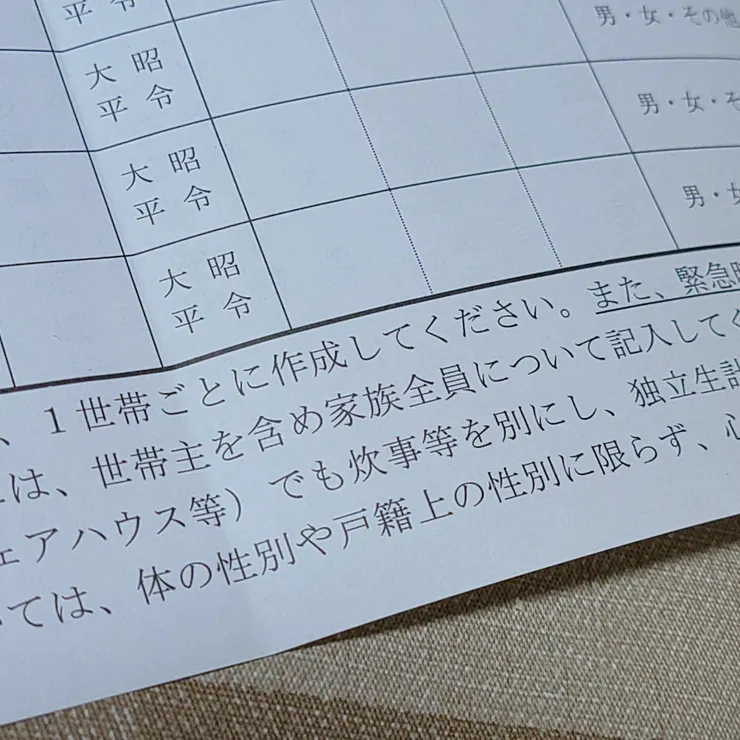 平 令
男・女・その他
大 昭
平 令
男・女・そ
大 昭
平 令
男・女
大 昭
平 令
、1世帯ごとに作成してください。また、緊急時
は、世帯主を含め家族全員について記入してく
ェアハウス等）でも炊事等を別にし、独立生計
ては、体の性別や戸籍上の性別に限らず、心